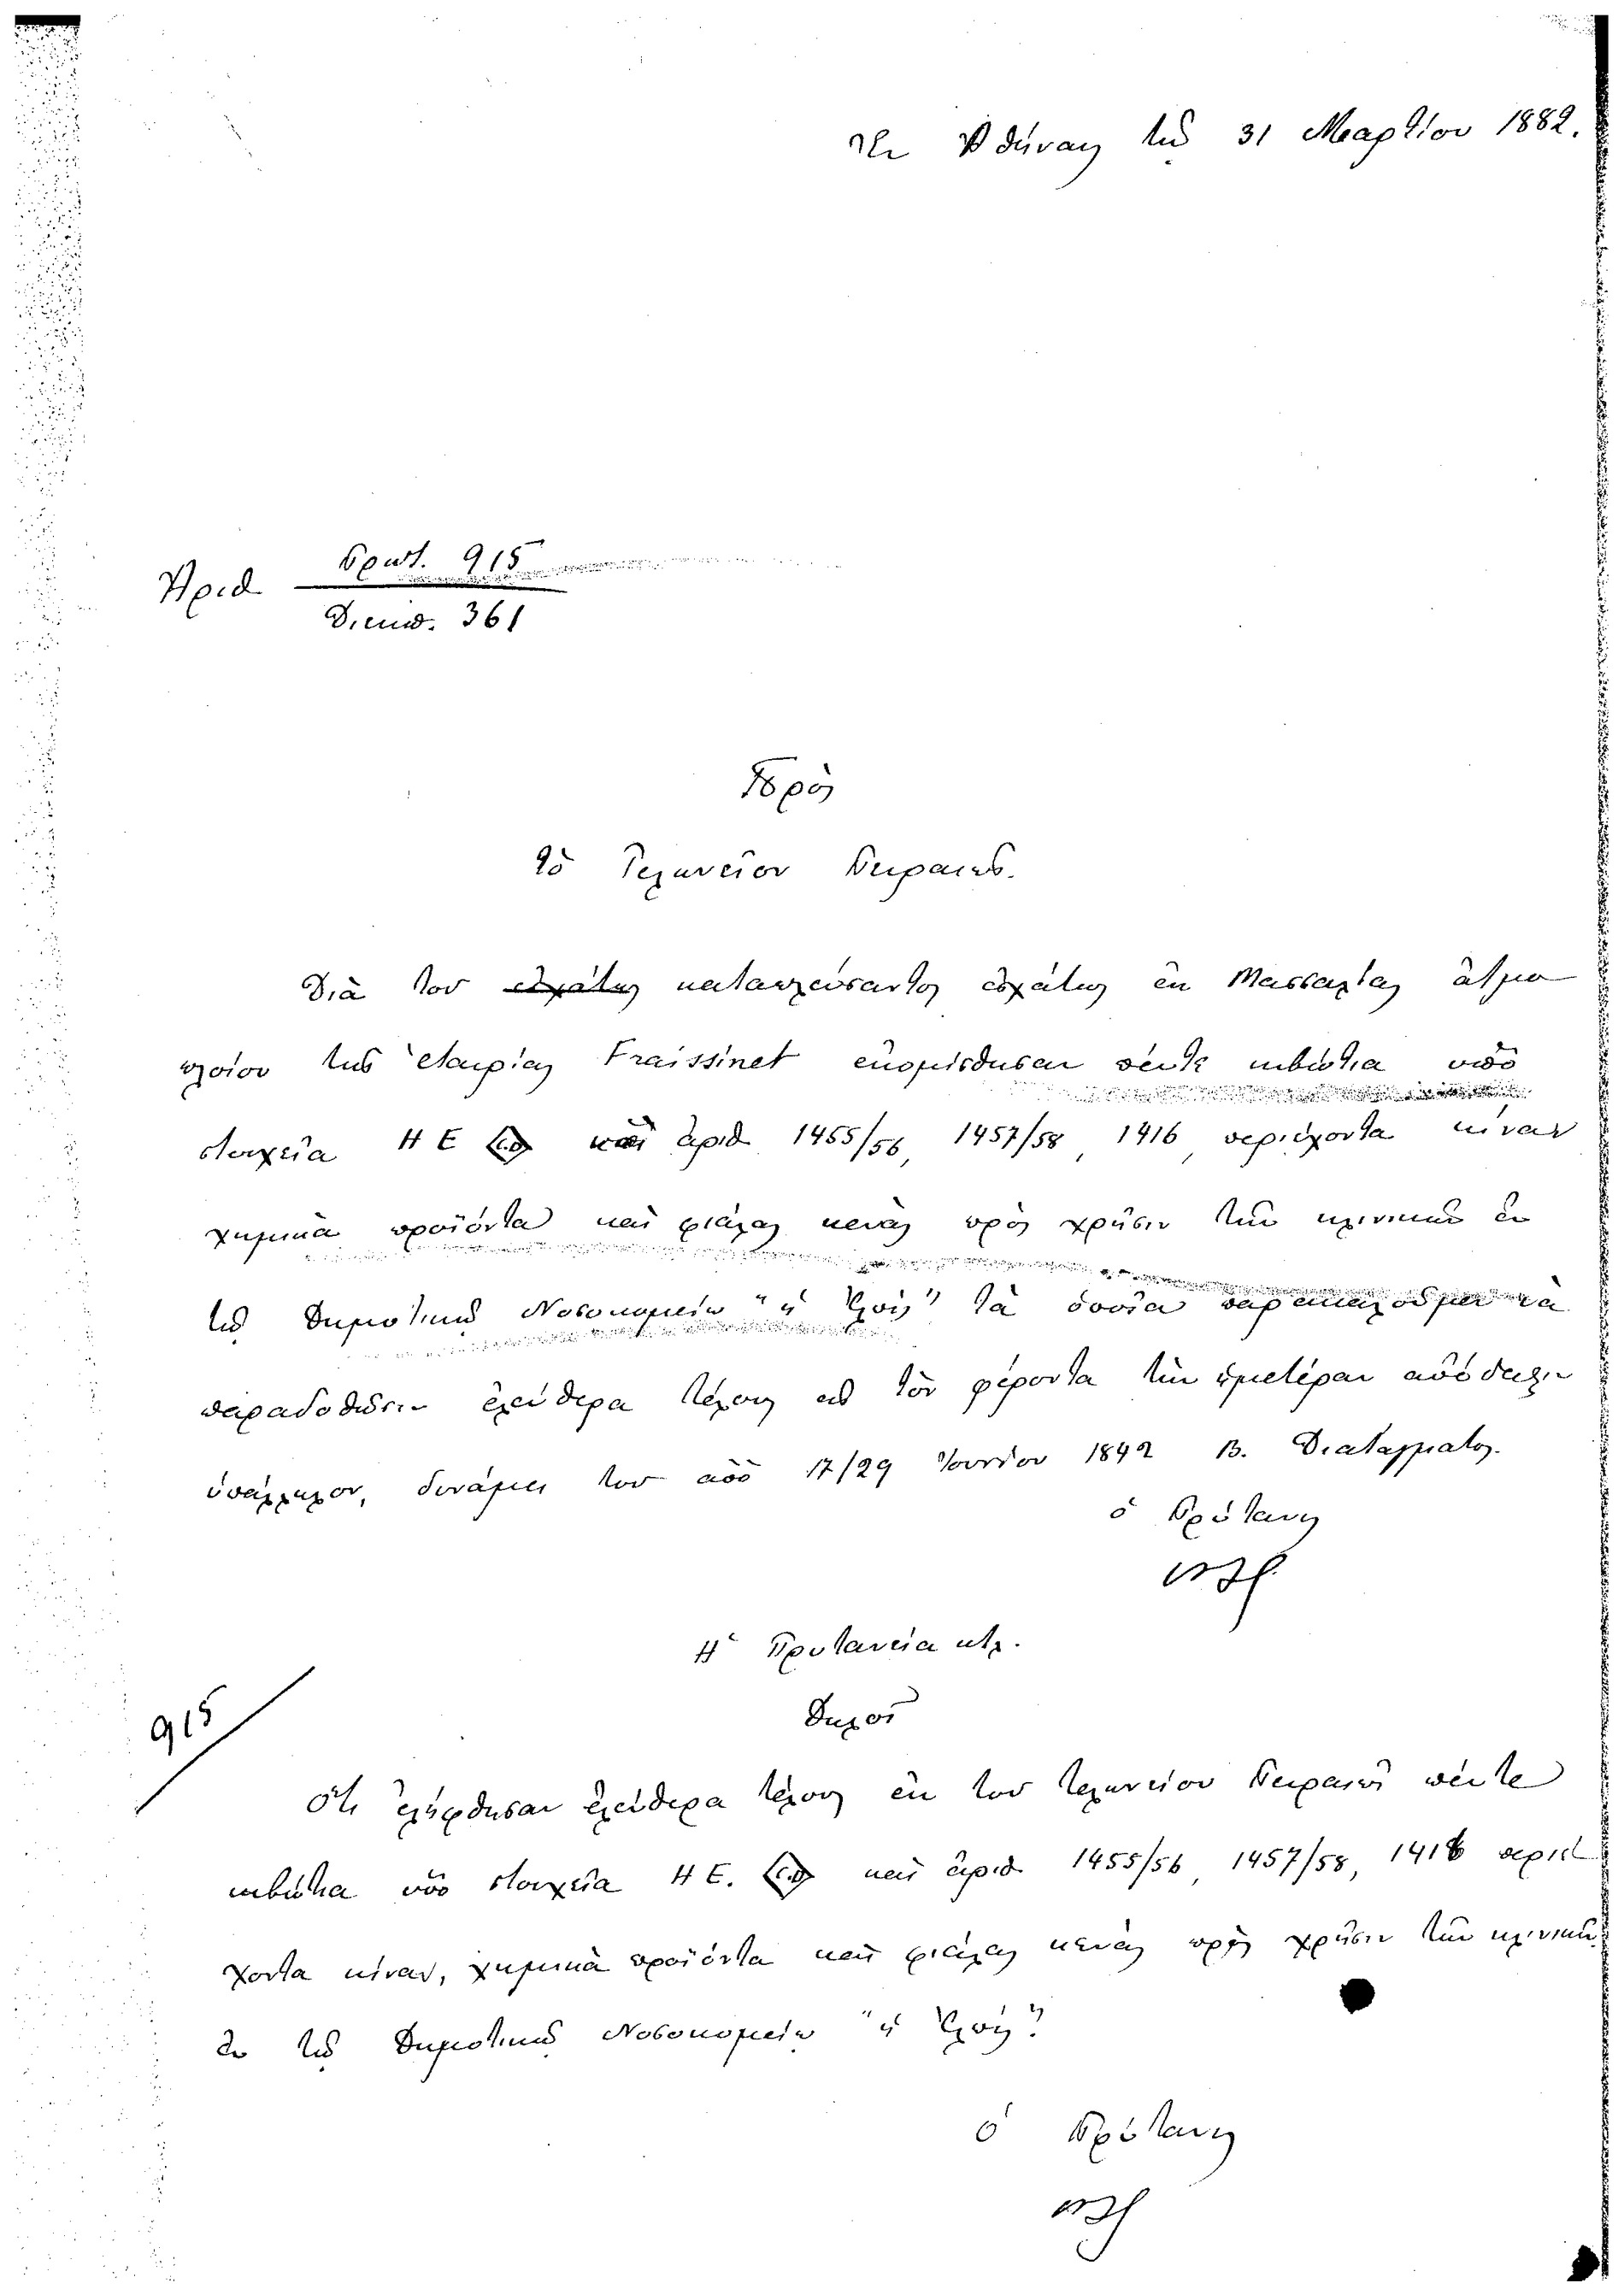 Ἐν Ἀθήναις τῇ 31 Μαρτίου 1882.
Πρωτ. 915
Ἀριθ
Διεκπ. 361
Πρὸς
τὸ Τελωνεῖον Πειραιῶς.
Διὰ τοῦ ἐσχάτως καταπλεύσαντος ἐσχάτως ἐκ Μασσαλίας ἀτμο
πλοίου τῆς ἑταιρίας Fraissinet ἐκομίσθησαν πέντε κιβώτια ὑπὸ
στοιχεῖα Η Ε καὶ ἀριθ 1455/56, 1457/58, 1416 περιέχοντα κίναν
χημικὰ προϊόντα καὶ φιάλας κενὰς πρὸς χρῆσιν τῶν κλινικῶν ἐν
τῷ Δημοτικῷ Νοσοκομείῳ "ἡ Ἐλπὶς" τὰ ὁποῖα παρακαλοῦμεν νὰ
παραδοθῶσιν ἐλεύθερα τέλους εἰς τὸν φέροντα τὴν ἡμετέραν ἀπόδειξιν
ὑπάλληλον, δυνάμει τοῦ ἀπὸ 17/29 Ἰουνίου 1842 Β. Διατάγματος.
ὁ Πρύτανις
Ἡ Πρυτανεία κτλ.
915
Δηλοῖ
ὅτι ἐλήφθησαν ἐλεύθερα τέλους ἐκ τοῦ τελωνείου Πειραιῶς πέντε
κιβώτια ὑπὸ στοιχεῖα Η Ε. καὶ ἀριθ 1455/56, 1457/58, 1416 περιέ
χοντα κίναν, χημικὰ προϊόντα καὶ φιάλας κενὰς πρὸς χρῆσιν τῶν κλινικῶν
ἐν τῷ Δημοτικῷ Νοσοκομείῳ "ἡ Ἐλπίς"
ὁ Πρύτανις